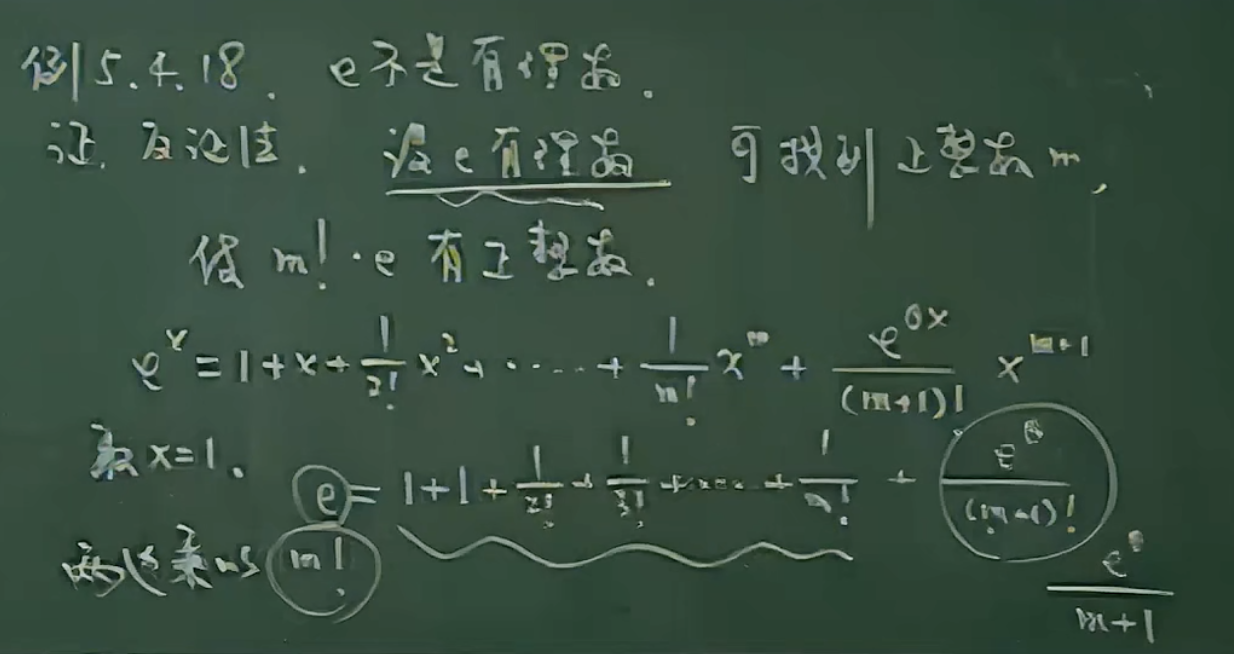 例5.4.18. e不是有理数.
证. 反证法. 设e有理数 可找到正整数m,
使 m!·e 有正整数.
e^x = 1+x+\frac{1}{2!}x^2+·····+\frac{1}{m!}x^m+\frac{e^{θx}}{(m+1)!} x^{m+1}
取x=1. e=1+1+\frac{1}{2!}+\frac{1}{3!}+····+\frac{1}{m!} + \frac{e^θ}{(m+1)!}
两边乘以 m! \frac{e^θ}{m+1}